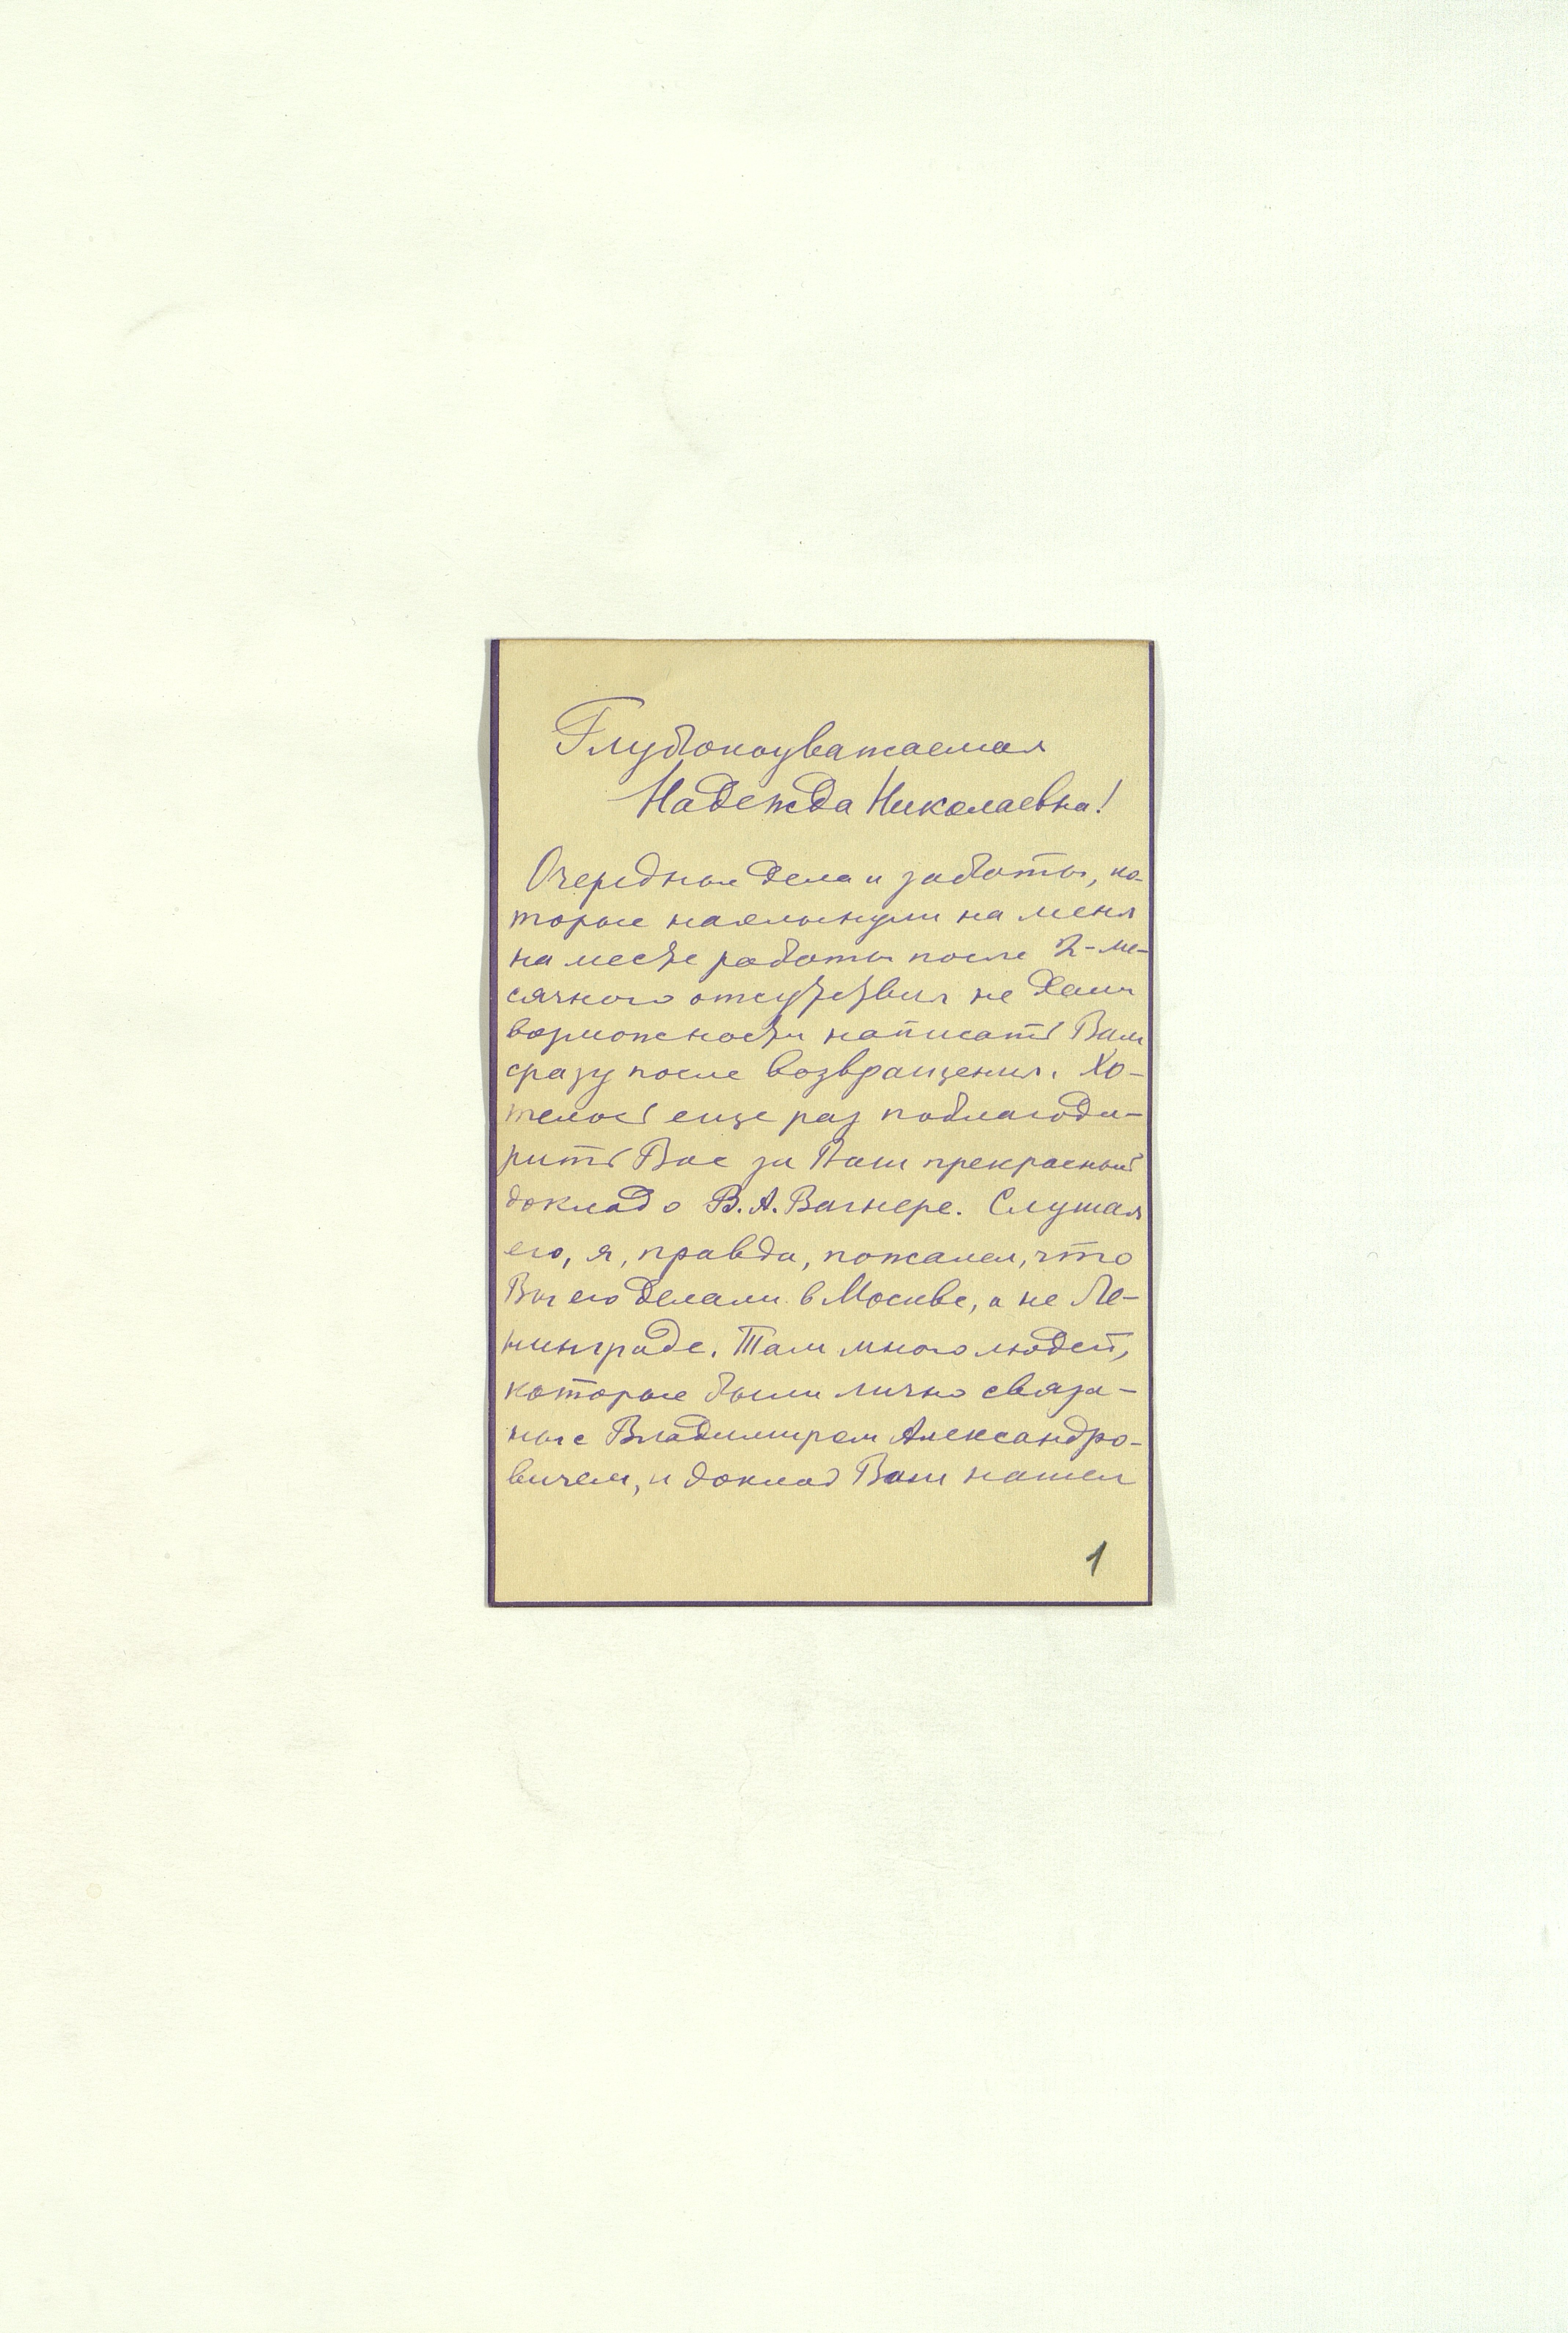 Глубокоуважаемая
Надежда Николаевна!
Очередные дела и заботы, ко-
торые нахлынули на меня
на месте работы после 2-ме-
сячного отсутствия не дали
возможности написать Вам
сразу после возвращения. Хо-
телось еще раз поблагода-
рить Вас за Ваш прекрасный
доклад о В. А. Вагнере. Слушая
его, я, правда, пожалел, что
Вы его делали в Москве, а не Ле-
нинграде. Там много людей,
которые были лично связа-
ны с Владимиром Александро-
вичем, и доклад Ваш нашел
1